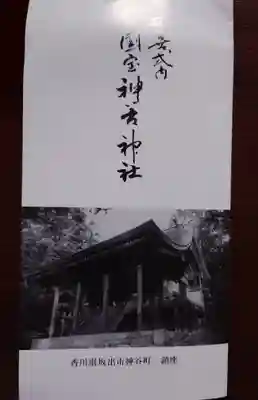 式内
國宝神谷神社
香川縣坂出市神谷町　鎮座